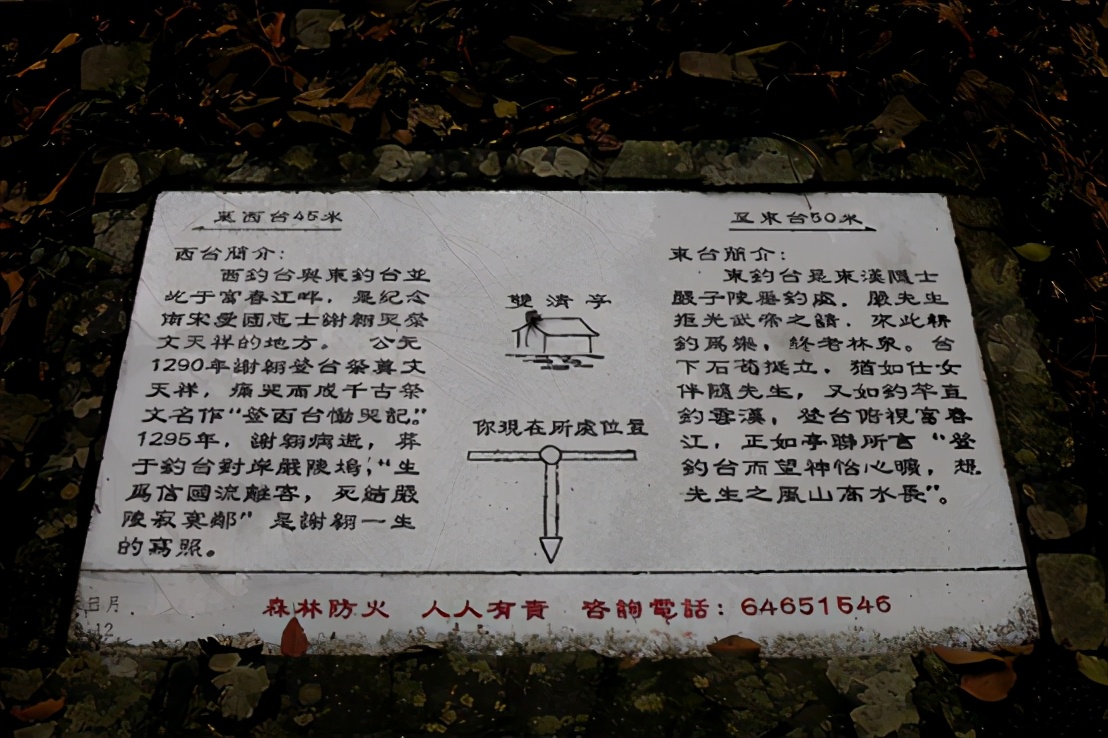 至西台45米
西台簡介：
西釣台與東釣台並
北于富春江畔，是紀念
南宋愛國志士謝翱哭祭
文天祥的地方。 公元
1290年謝翱登台祭奠文
天祥，痛哭而成千古祭
文名作“登西台慟哭記”。
1295年，謝翱病逝，葬
于釣台對岸嚴陵塢，“生
爲信國流離客，死結嚴
陵寂寞鄰”是謝翱一生
的寫照。
雙清亭
你現在所處位置
至東台50米
東台簡介：
東釣台是東漢隱士
嚴子陵垂釣處。嚴先生
拒光武帝之請，來此耕
釣爲樂，終老林泉。台
下石筍挺立，猶如仕女
伴隨先生，又如釣竿直
釣雲漢，登台俯視富春
江，正如亭聯所言“登
釣台而望神怡心曠，想
先生之風山高水長”。
森林防火 人人有責 咨詢電話：64651546
日月
12